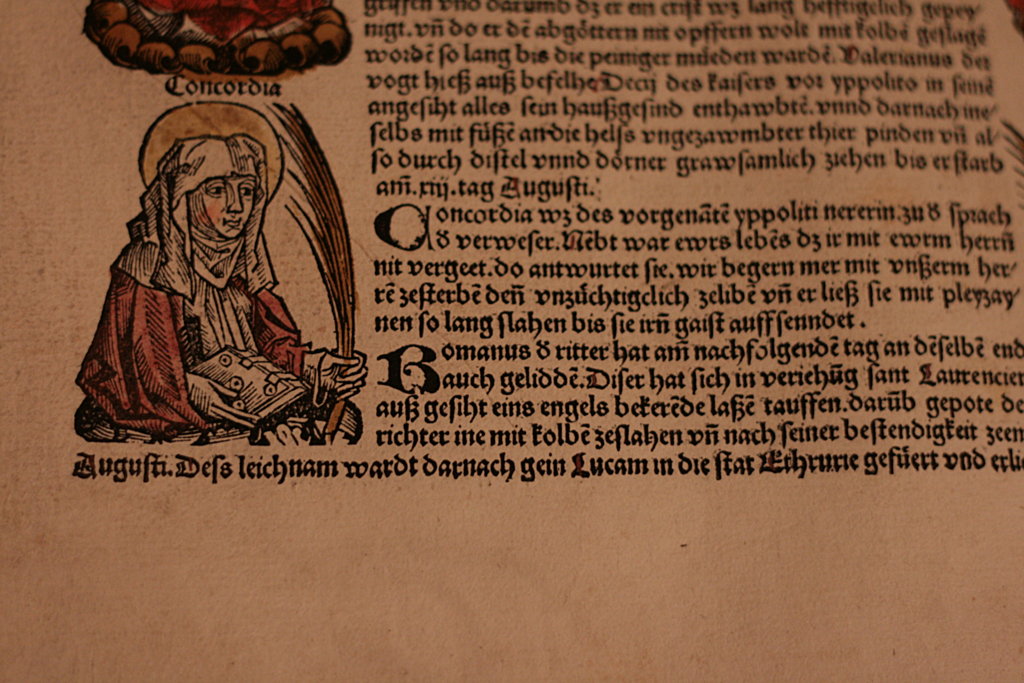 griffen vnd darumb dz er ein crist wz lang hefftigelich gepey
nigt. vñ do er dē abgöttern nit opffern wolt mit kolbē geslagē
wordē so lang bis die peiniger mueden wardē. Valerianus der
vogt hieß auß befelhe Decij des kaisers vor yppolito in seinē
angesiht alles sein haußgesind enthawbtē. vnnd darnach ine
selbs mit füßē an die helſs vngezawmbter thier pinden vñ al
so durch distel vnnd dörner grawsamlich ziehen bis er starb
am̄. xiij. tag Augusti.
Concordia
Concordia wz des vorgenātē yppoliti nererin. zu d̕ sprach
d̕ verweser. Nēbt war ewrs lebēs dz ir mit ewrm herrn̄
nit vergeet. do antwurtet sie. wir begern mer mit vnßerm her
rē zesterbē den̄ vnzüchtigclich zelibē vñ er ließ sie mit pleyzay
nen so lang slahen bis sie irn̄ gaist auffsenndet.
Romanus d̕ ritter hat am̄ nachfolgendē tag an dēselbē end
auch geliddē. Diser hat sich in veriehūg sant Laurencier
auß gesiht eins engels bekerēde laßē tauffen. darūb gepote de
richter ine mit kolbē zeslahen vñ nach seiner bestendigkeit zeen
Augusti. Deſs leichnam wardt darnach gein Lucam in die stat Ethrurie gefüert vnd erlic